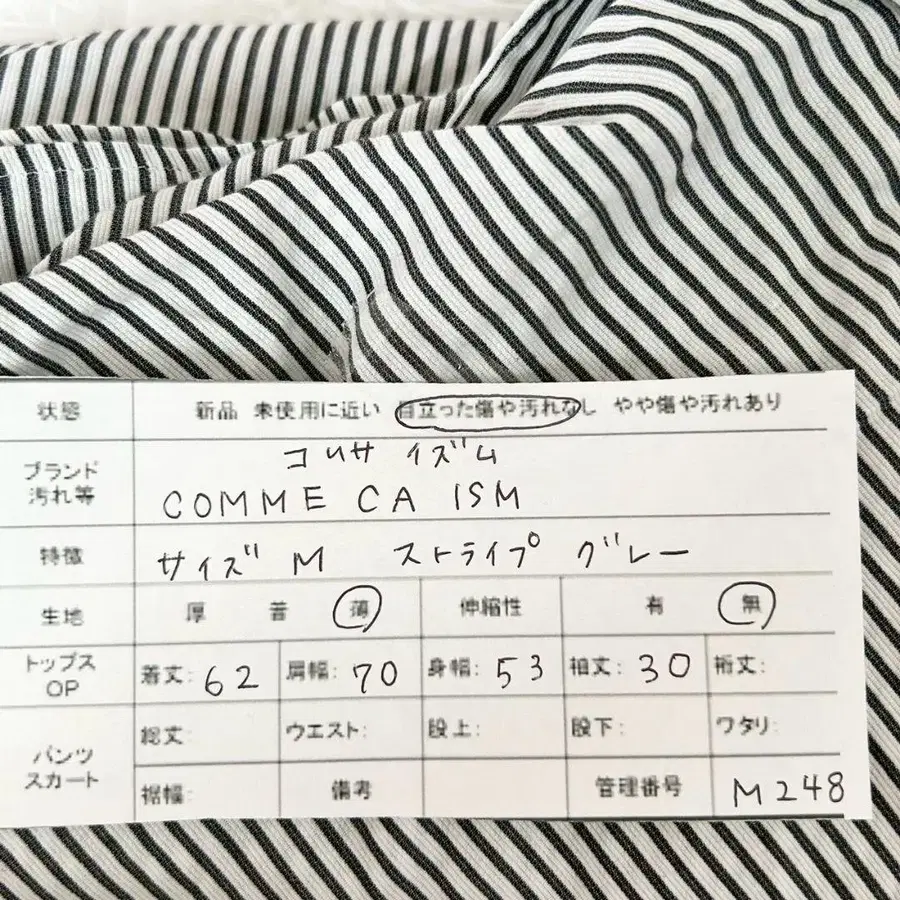 状態 新品 未使用に近い 目立った傷や汚れなし やや傷や汚れあり
コムサイズム
ブランド
汚れ等
COMME CA ISM
特徴 サイズ M ストライプ グレー
生地 厚 普 薄 伸縮性 有 無
トップス
OP
着丈: 62 肩幅: 70 身幅: 53 袖丈: 30 裄丈:
総丈: ウエスト: 股上: 股下: ワタリ:
パンツ
スカート
裾幅: 備考 管理番号 M248